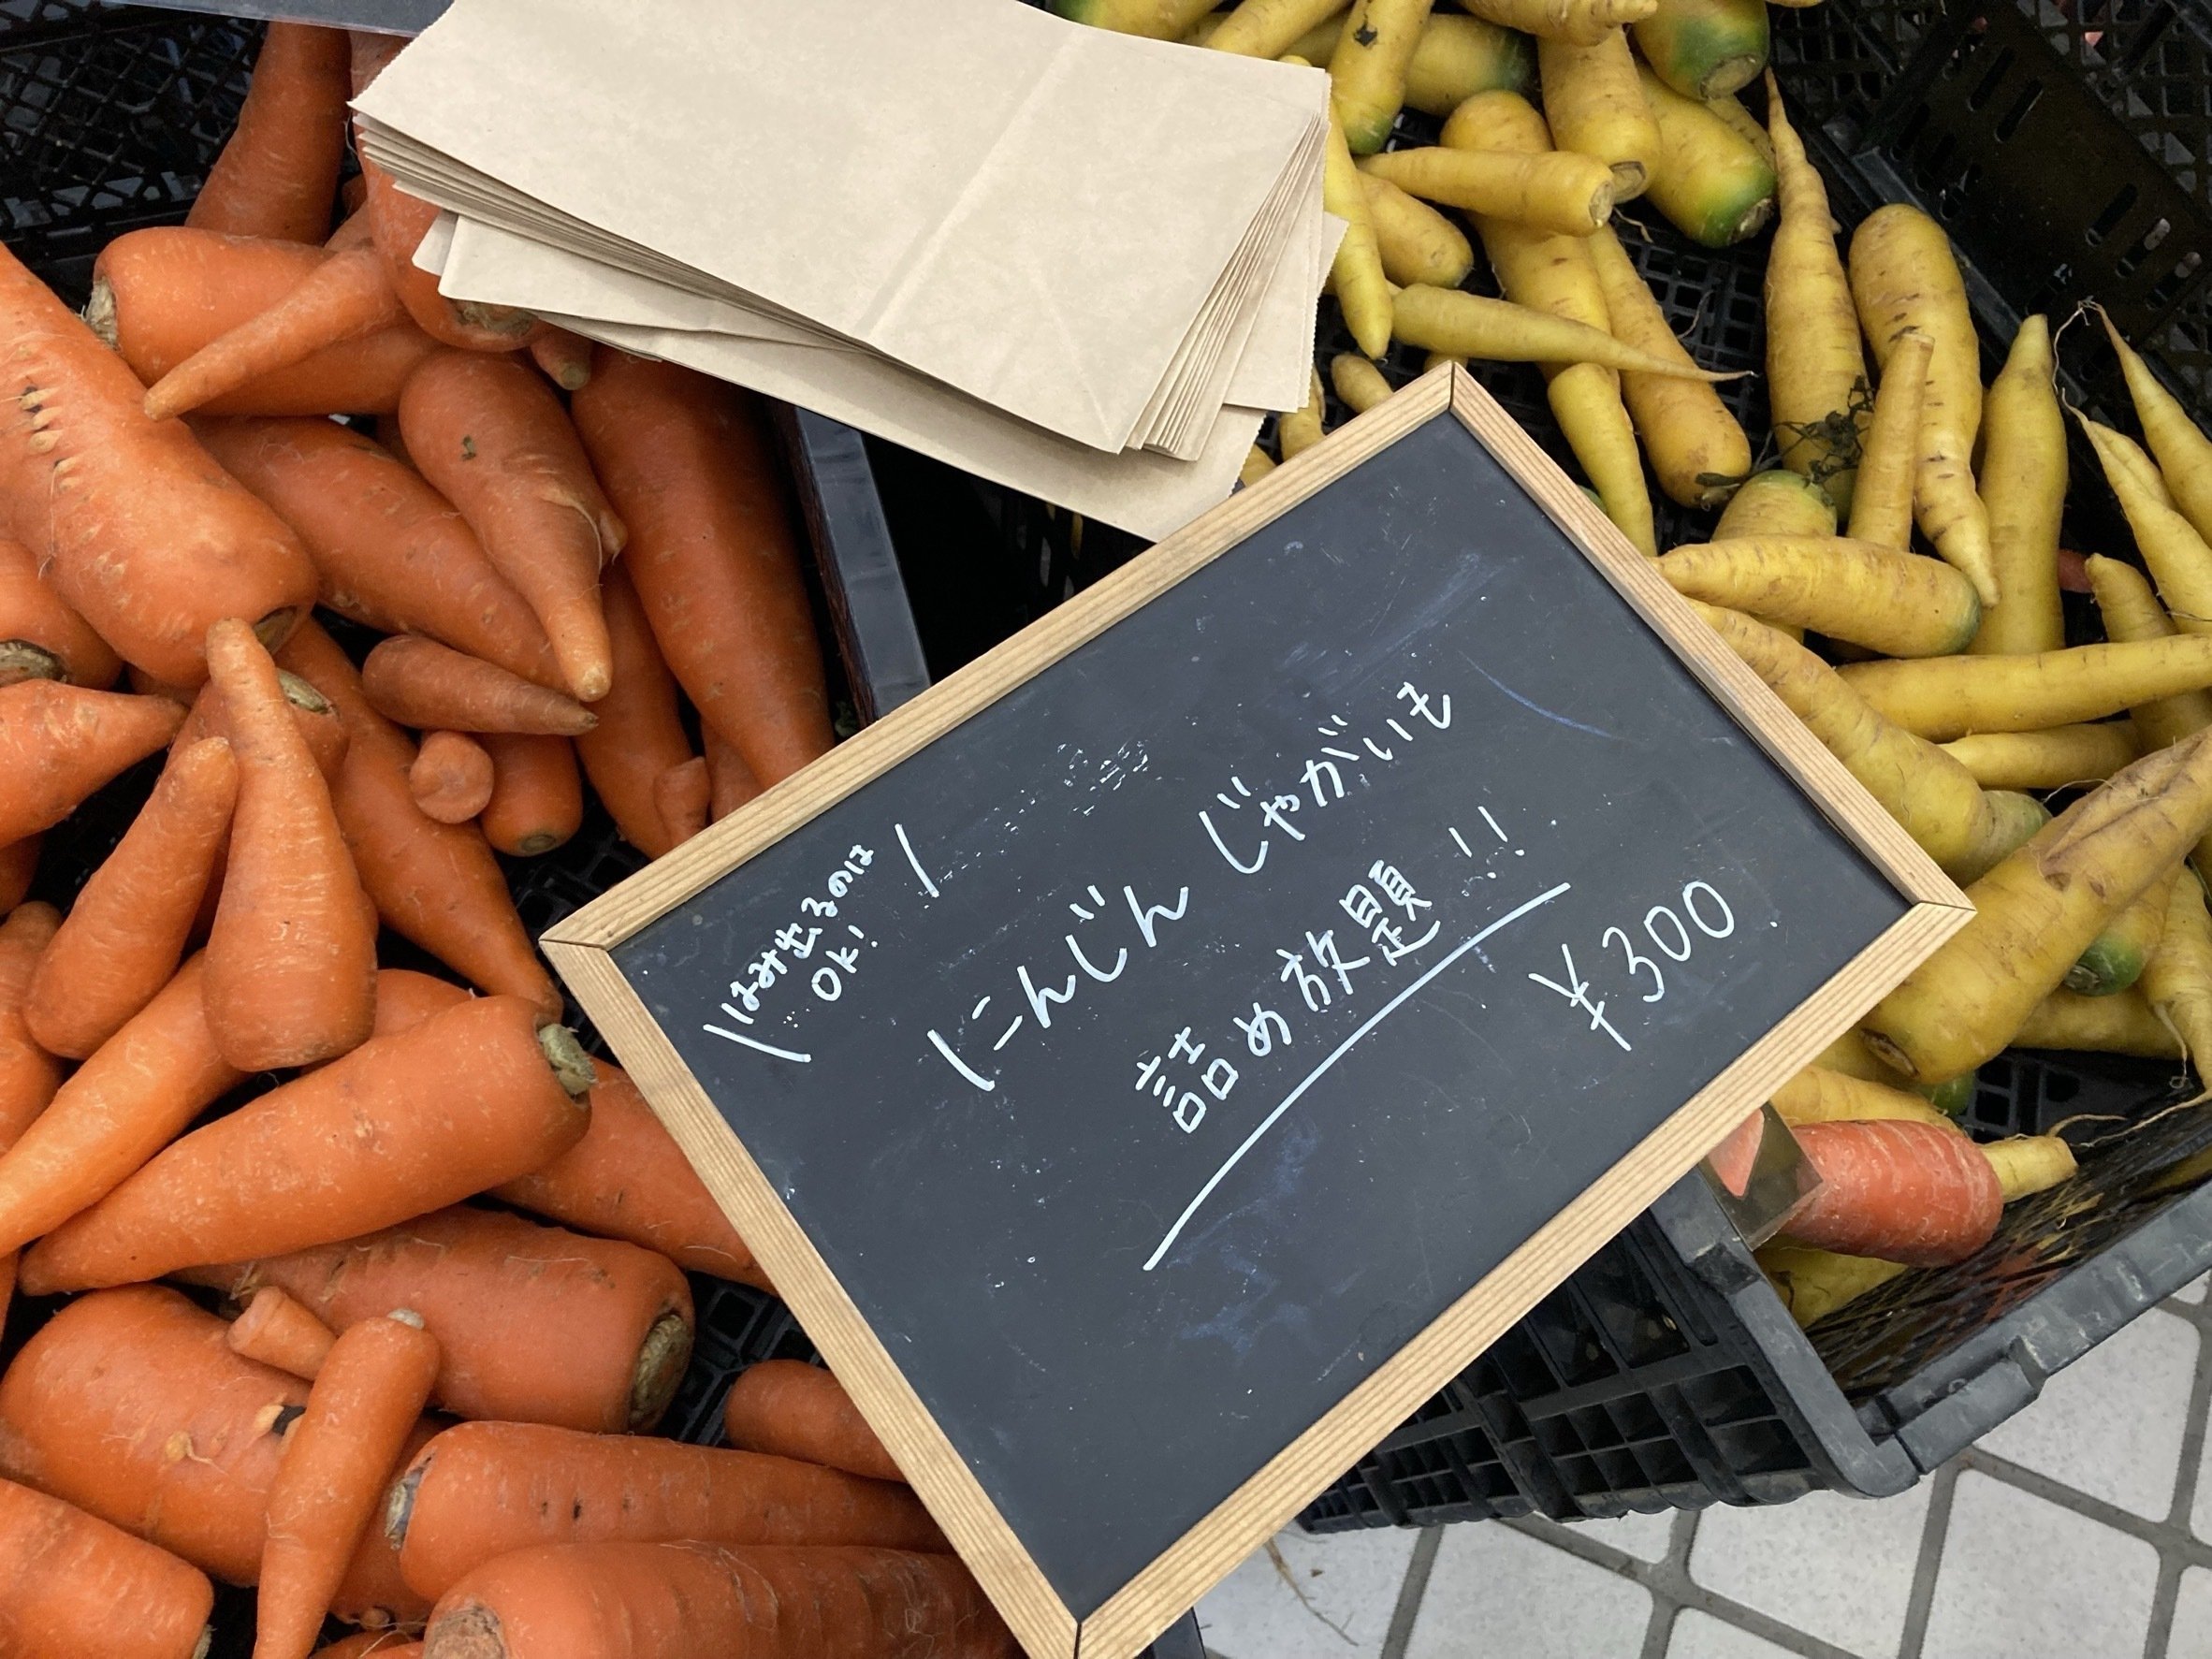 はみ出るのは
OK!
にんじん じゃがいも
詰め放題!!
¥300.